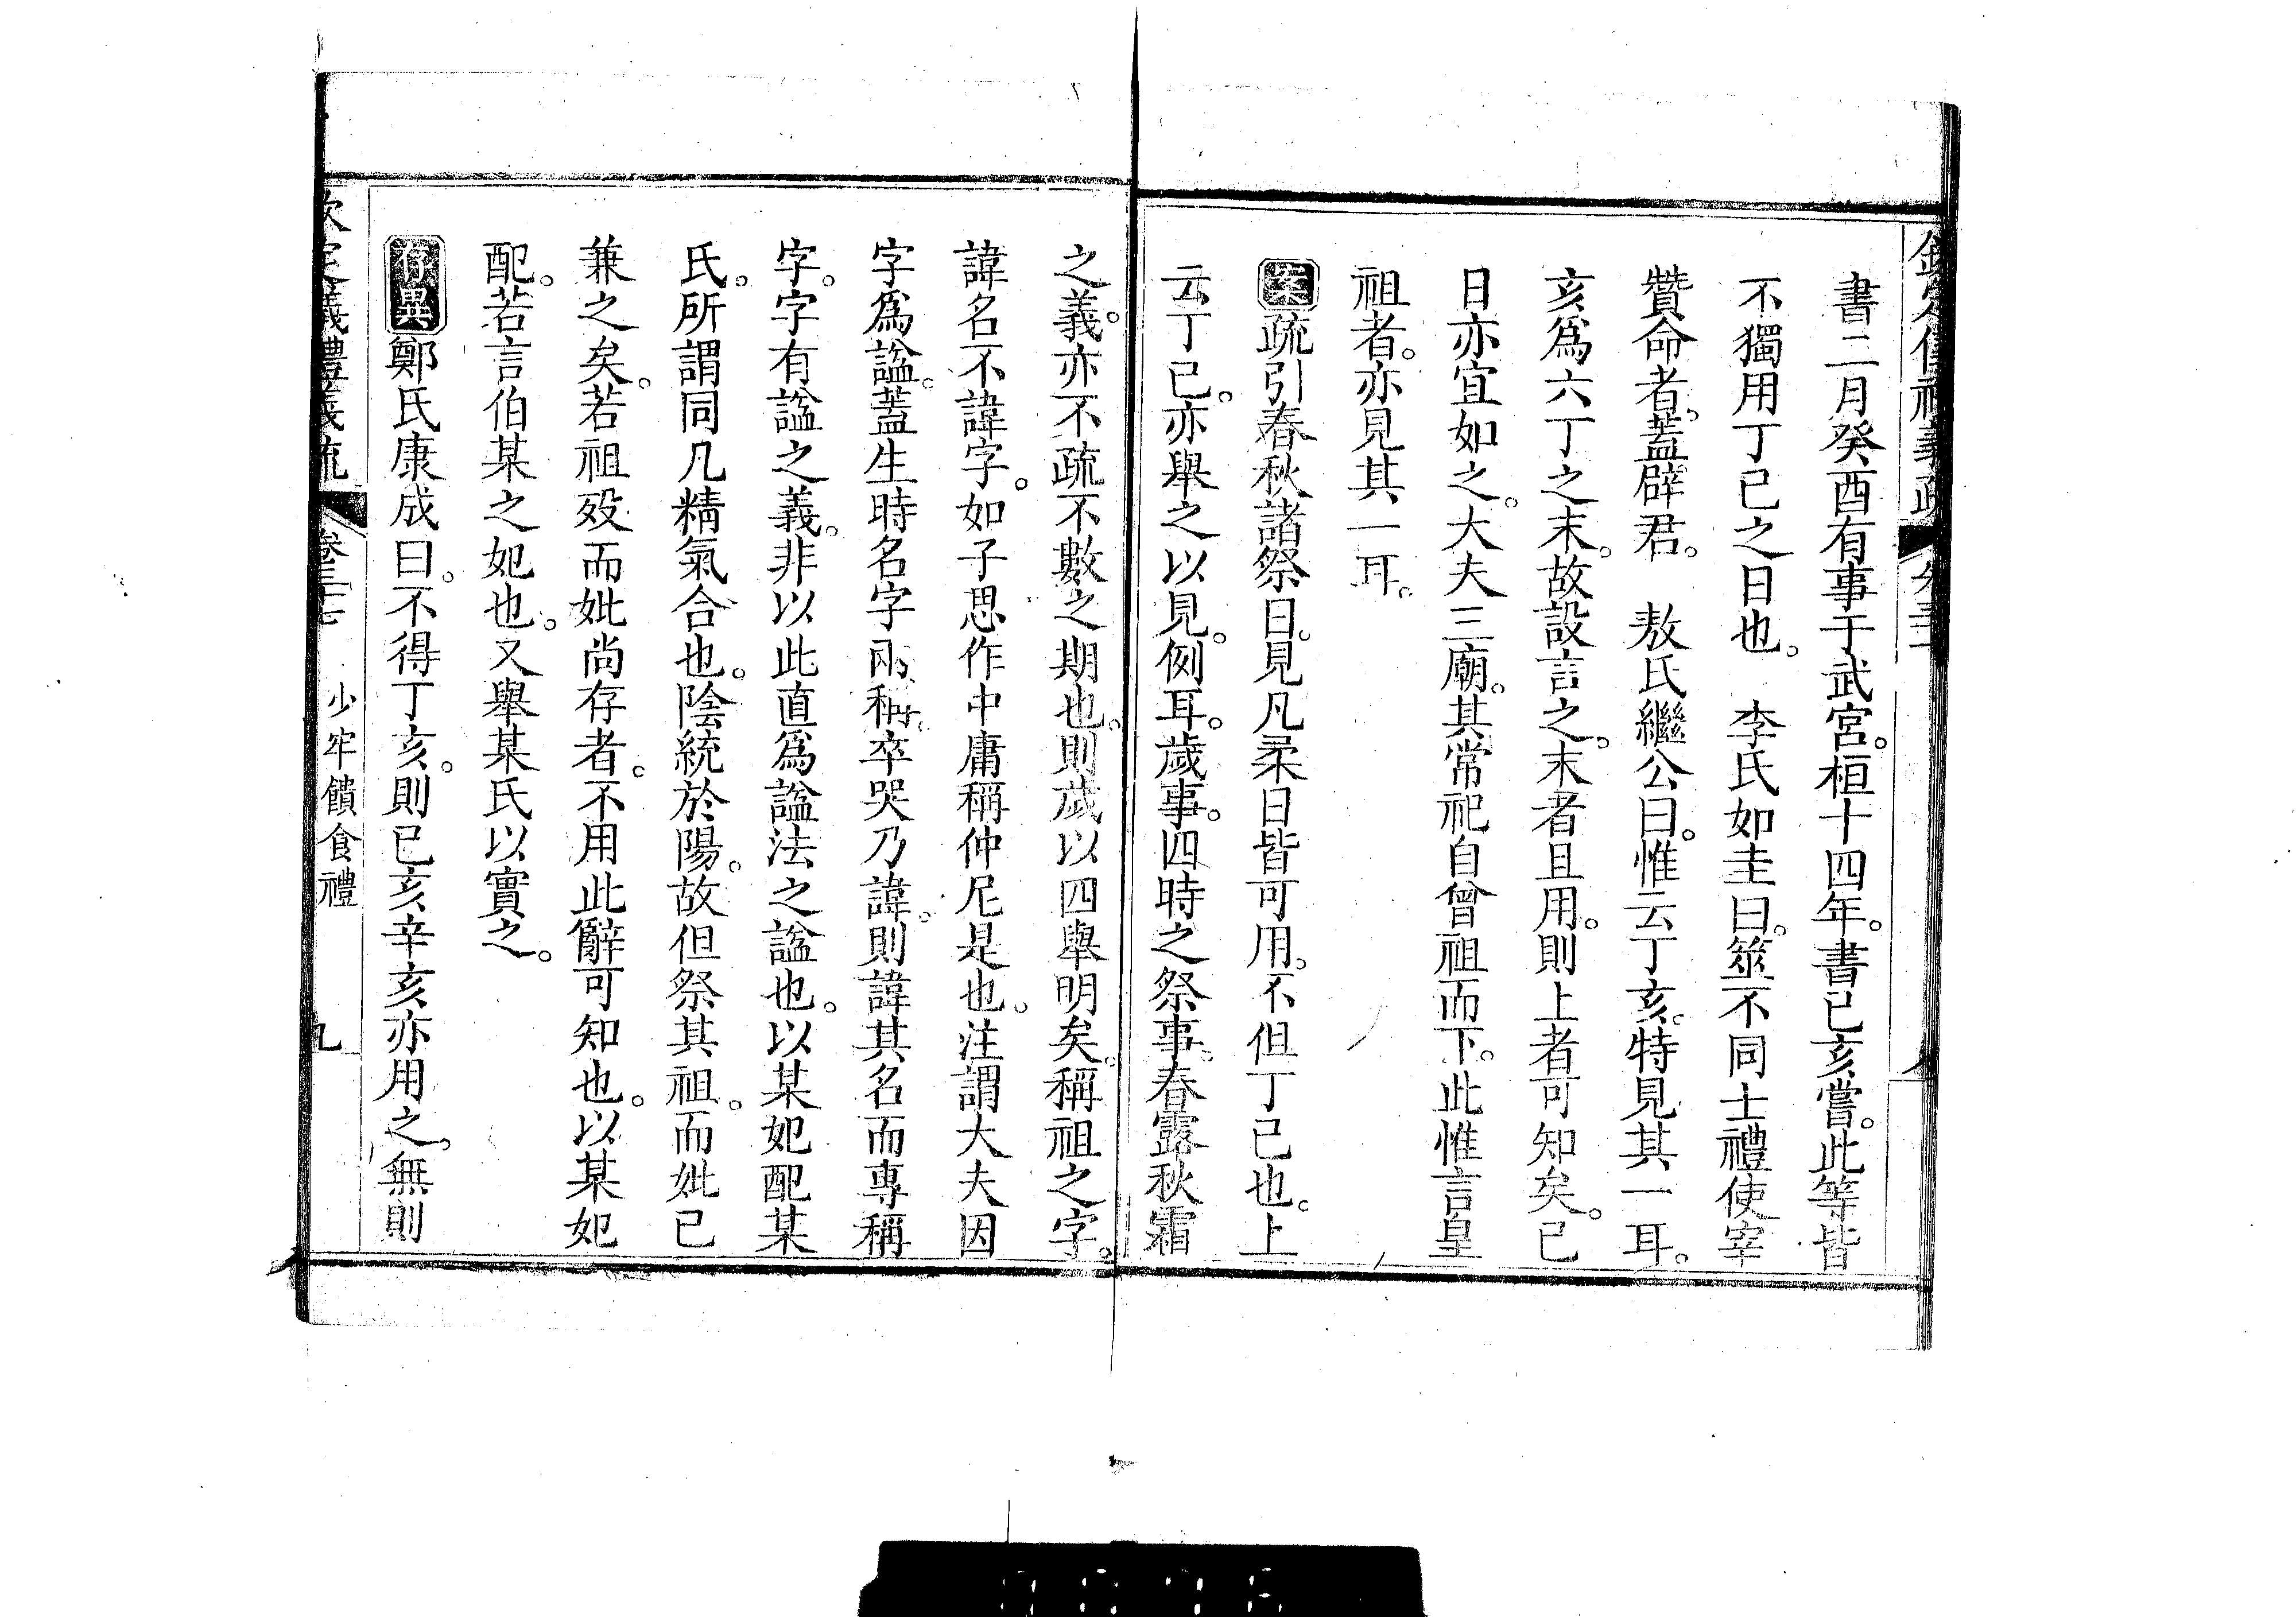 欽定儀禮義疏 卷三十七
書二月癸酉有事于武宮。桓十四年。書已亥嘗。此等皆
不獨用丁已之日也。 李氏如圭曰。筮不同士禮使宰
贊命者。蓋辟君。 敖氏繼公曰。惟云丁亥。特見其一耳。
亥爲六丁之末。故設言之。末者且用。則上者可知矣。已
日亦宜如之。大夫三廟。其常祀自曾祖而下。此惟言皇
祖者。亦見其一耳。
案疏引春秋諸祭日。見凡柔日皆可用。不但丁已也。上
云丁已。亦舉之以見例耳。歲事。四時之祭事。春露秋霜
之義。亦不疏不數之期也。則歲以四舉明矣。稱祖之字。
諱名不諱字。如子思作中庸稱仲尼是也。注謂大夫因
字爲諡。蓋生時名字兩稱。卒哭乃諱。則諱其名而專稱
字。字有諡之義。非以此直爲諡法之諡也。以某妃配某
氏。所謂同几精氣合也。陰統於陽。故但祭其祖。而妣已
兼之矣。若祖歿而妣尚存者。不用此辭可知也。以某妃
配。若言伯某之妃也。又舉某氏以實之。
存異鄭氏康成曰。不得丁亥。則已亥辛亥亦用之。無則
欽定義禮義疏 卷三十七 少牢饋食禮 九